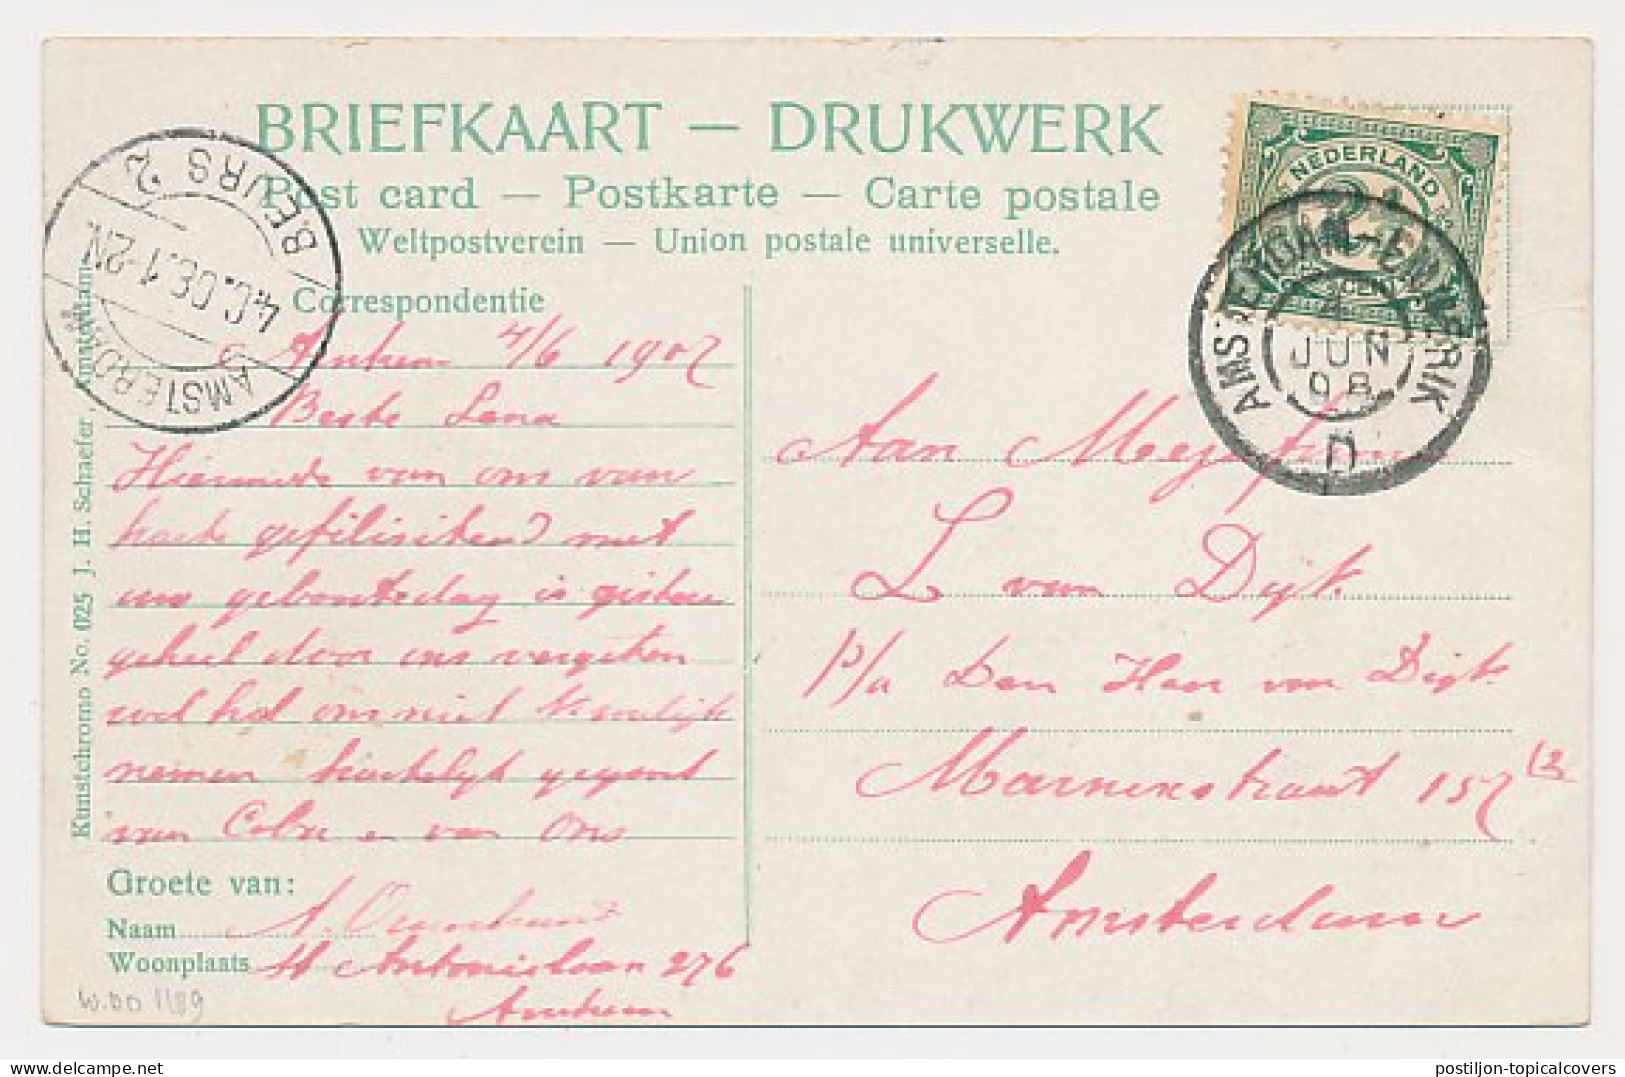 BRIEFKAART — DRUKWERK
Post card — Postkarte — Carte postale
Weltpostverein — Union postale universelle.
NEDERLAND
2½
CENT
AMSTERDAM-EMMERIK
4
JUN
08
D
BEURS 2
4.6.08.1-2N.
AMSTERDAM
Correspondentie
Arnhem 4/6 1907
Beste Lena
Hiermede van ons van
harte gefiliciteerd met
uw geboortedag is gisteren
geheel door ons vergeten
wel hol ons niet kwalijk
nemen hartelijk gegroet
van Cobre en van Ons
Groete van:
Naam
Woonplaats St Antonislaan 276
Arnhem
Kunstchromo No. 025 J. H. Schaefer, Amsterdam
Aan Mejufrouw
L van Dijk
p/a Den Heer van Dijk
Marnixstraat 157
Amsterdam
W.DO 1189
www.delcampe.net
postiljon-topicalcovers